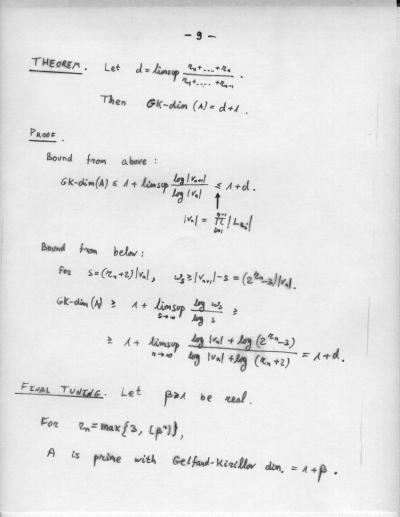 - 9 -
THEOREM. Let d = limsup (r₁+...+rₙ)/(r₁+...+rₙ₋₁).
Then GK-dim(A) = d+1.
PROOF.
Bound from above:
GK-dim(A) ≤ 1 + limsup log|Vₙ₊₁|/log|Vₙ| ≤ 1+d.
|Vₙ| = ∏ᵢ₌₁ⁿ⁻¹ |L_{rᵢ}|
Bound from below:
For s = (rₙ+2)|Vₙ|, wₛ ≥ |Vₙ₊₁| - s = (2^{rₙ}-3)|Vₙ|.
GK-dim(A) ≥ 1 + limsup_{s→∞} log wₛ/log s ≥
≥ 1 + limsup_{n→∞} (log|Vₙ| + log(2^{rₙ}-3))/(log|Vₙ| + log(rₙ+2)) = 1+d.
FINAL TUNING. Let β≥1 be real.
For rₙ = max{3, [βⁿ]},
A is prime with Gelfand-Kirillov dim. = 1+β.